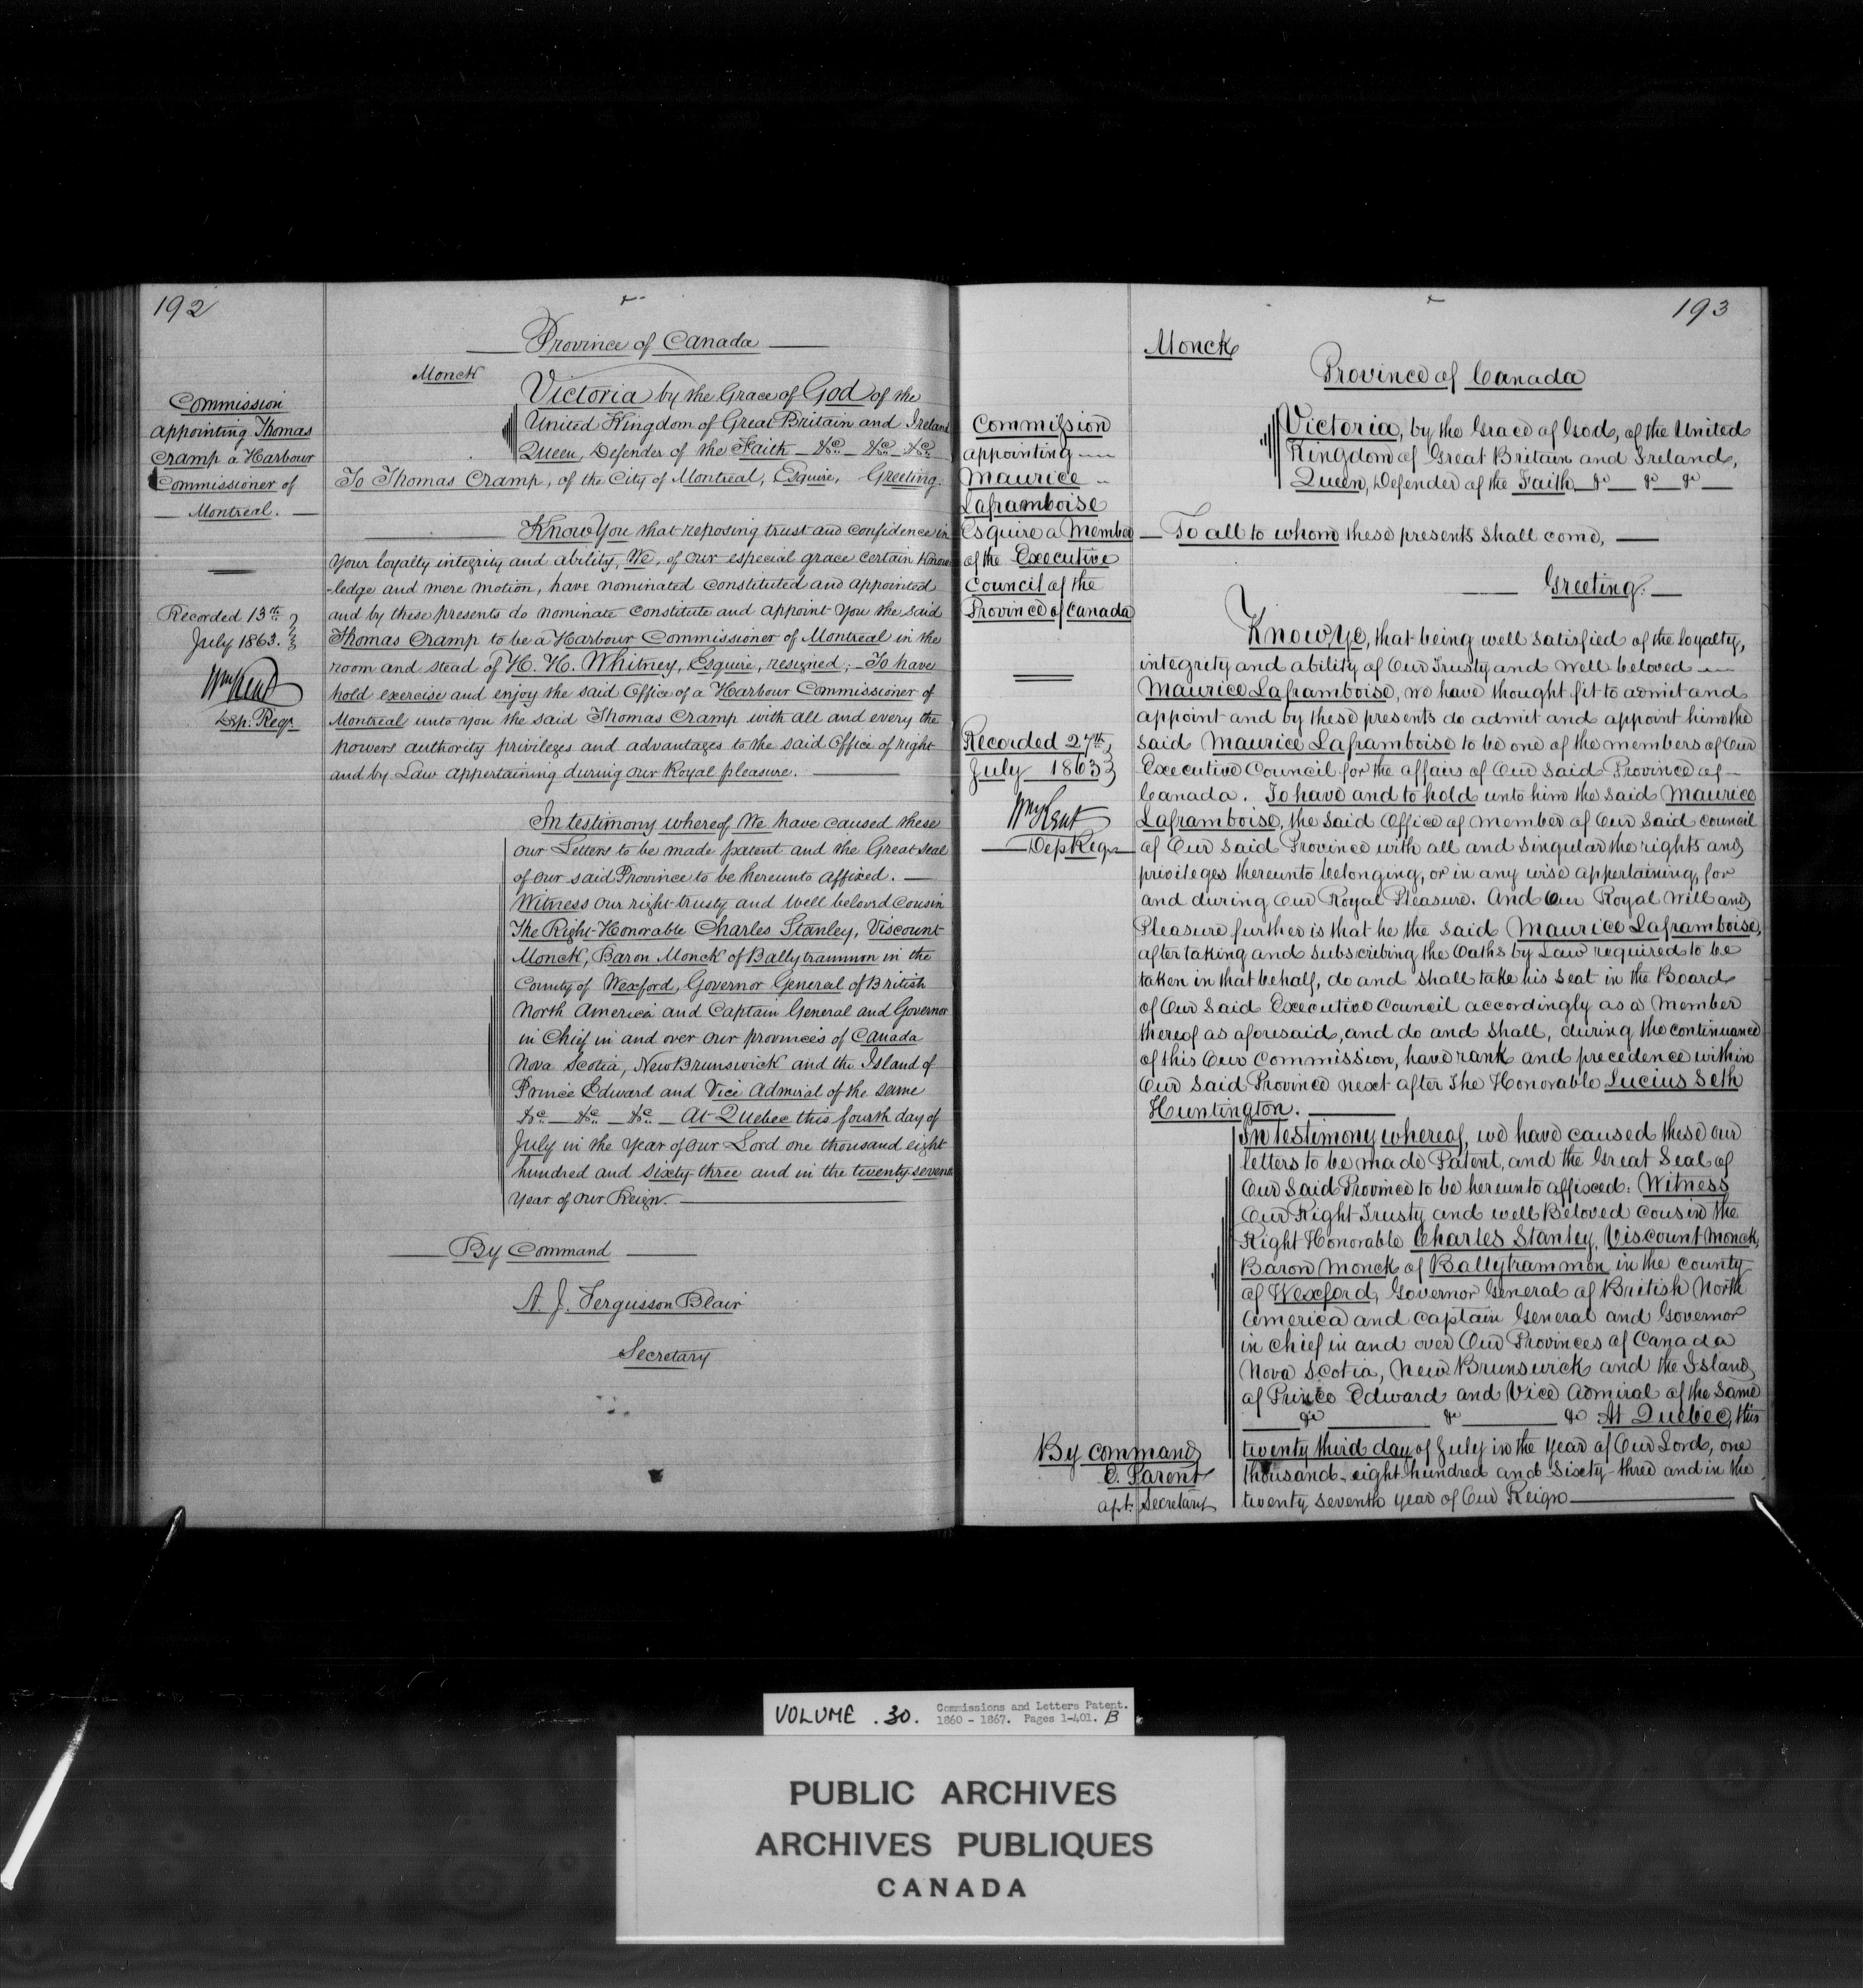 192
Province of Canada
Monck
Commission
appointing Thomas
Cramp a Harbour
Commissioner of
Montreal.
Recorded 13th
July 1863.
Wm Kent
Dep. Regr
Victoria by the Grace of God of the
United Kingdom of Great Britain and Ireland
Queen, Defender of the Faith &c. &c. &c.
To Thomas Cramp, of the City of Montreal, Esquire, Greeting.
Know You that reposing trust and confidence in
your loyalty integrity and ability, We, of our especial grace certain know
-ledge and mere motion, have nominated constituted and appointed
and by these presents do nominate constitute and appoint You the said
Thomas Cramp to be a Harbour Commissioner of Montreal in the
room and stead of H. H. Whitney, Esquire, resigned; To have
hold exercise and enjoy the said Office of a Harbour Commissioner of
Montreal unto you the said Thomas Cramp with all and every the
powers authority privileges and advantages to the said Office of right
and by Law appertaining during our Royal pleasure.
In testimony whereof We have caused these
our Letters to be made patent and the Great Seal
of our said Province to be hereunto affixed.
Witness our right trusty and well beloved Cousin
The Right Honorable Charles Stanley, Viscount
Monck, Baron Monck of Ballytrammon in the
County of Wexford, Governor General of British
North America and Captain General and Governor
in Chief in and over our provinces of Canada
Nova Scotia, New Brunswick and the Island of
Prince Edward and Vice Admiral of the same
&c. &c. &c. At Quebec this fourth day of
July in the Year of our Lord one thousand eight
hundred and sixty three and in the twenty seventh
year of our Reign.
By Command
A. J. Fergusson Blair
Secretary
193
Monck
Province of Canada
Commission
appointing
Maurice
Laframboise
Esquire a Member
of the Executive
Council of the
Province of Canada
Recorded 27th
July 1863
Wm Kent
Dep Regr
Victoria, by the Grace of God, of the United
Kingdom of Great Britain and Ireland,
Queen, Defender of the Faith, &c &c &c
To all to whom these presents shall come,
Greeting.
Know Ye, that being well satisfied of the loyalty,
integrity and ability of Our Trusty and well beloved
Maurice Laframboise, we have thought fit to admit and
appoint and by these presents do admit and appoint him the
said Maurice Laframboise to be one of the members of Our
Executive Council for the affairs of Our said Province of
Canada. To have and to hold unto him the said Maurice
Laframboise, the said Office of member of Our said council
of Our said Province with all and singular the rights and
privileges thereunto belonging, or in any wise appertaining, for
and during Our Royal Pleasure. And Our Royal Will and
Pleasure further is that he the said Maurice Laframboise,
after taking and subscribing the Oaths by Law required to be
taken in that behalf, do and shall take his seat in the Board
of Our said Executive Council accordingly as a Member
thereof as aforesaid, and do and shall, during the continuance
of this Our Commission, have rank and precedence within
Our said Province next after The Honorable Lucius Seth
Huntington.
In testimony whereof, we have caused these our
letters to be made Patent, and the Great Seal of
Our Said Province to be hereunto affixed: Witness
Our Right Trusty and well Beloved cousin the
Right Honorable Charles Stanley, Viscount Monck,
Baron Monck of Ballytrammon in the county
of Wexford, Governor General of British North
America and Captain General and Governor
in chief in and over Our Provinces of Canada
Nova Scotia, New Brunswick and the Island
of Prince Edward and Vice Admiral of the same
&c &c &c At Quebec, this
twenty third day of July in the year of Our Lord, one
thousand eight hundred and sixty-three and in the
twenty seventh year of Our Reign
By command
E. Parent
Asst. Secretary
VOLUME .30. Commissions and Letters Patent.
1860 - 1867. Pages 1-401. B
PUBLIC ARCHIVES
ARCHIVES PUBLIQUES
CANADA